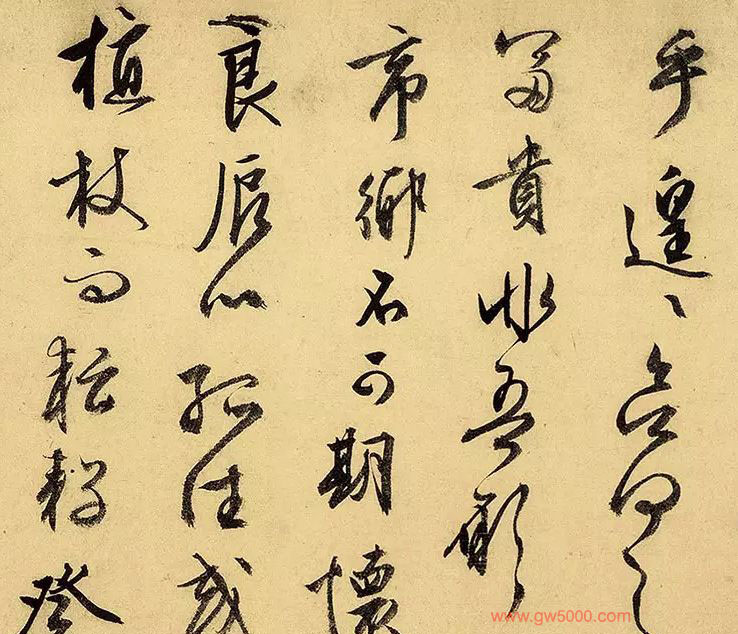 乎遑〻何之
富貴非吾願
帝鄉不可期懷
良辰以孤往或
植杖而耘耔登
www.gw5000.com